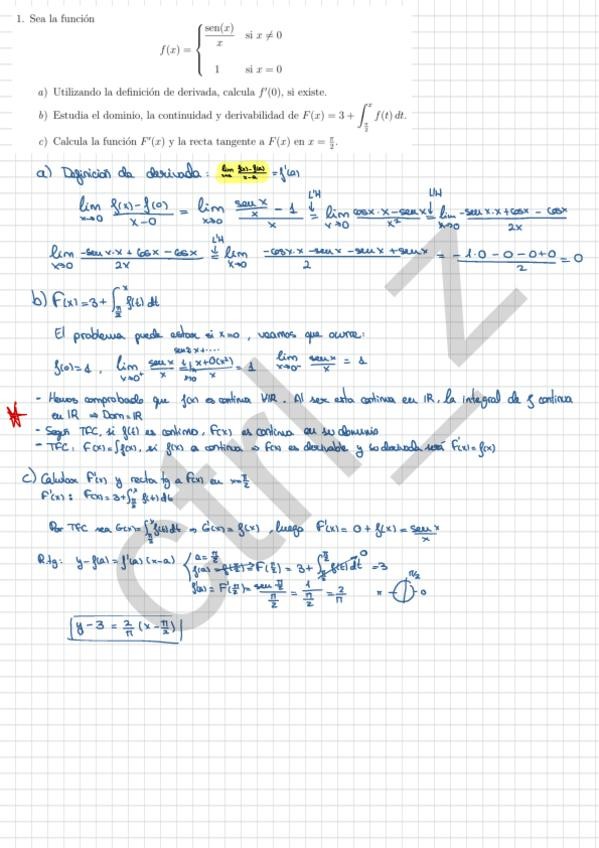 1. Sea la función
f(x) = { sen(x)/x si x ≠ 0
1 si x = 0
a) Utilizando la definición de derivada, calcula f'(0), si existe.
b) Estudia el dominio, la continuidad y derivabilidad de F(x) = 3 + ∫_{π/2}^{x} f(t) dt.
c) Calcula la función F'(x) y la recta tangente a F(x) en x = π/2.
a) Definición de derivada: lim f(x)-f(a)/x-a = f'(a)
lim x→0 f(x)-f(0)/x-0 = lim x→0 (sen x/x - 1)/x =(L'H) lim x→0 (cosx·x - senx)/x² =(L'H) lim x→0 (-sen x·x + cosx - cosx)/2x
lim x→0 (-sen x·x + cosx - cosx)/2x =(L'H) lim x→0 (-cosx·x - senx - senx + senx)/2 = (-1·0 - 0 - 0 + 0)/2 = 0
b) F(x) = 3 + ∫_{π/2}^{x} f(t) dt
El problema puede estar si x=0, veamos que ocurre:
f(0)=1, lim x→0⁺ sen x/x = lim x→0 x+O(x²)/x = 1 lim x→0⁻ sen x/x = 1
- Hemos comprobado que f(x) es continua ∀IR. Al ser esta continua en IR, la integral de f continua
en IR ⇒ Dom = IR
- Según TFC, si f(t) es continua, F(x) es continua en su dominio
- TFC: F(x)=∫f(x), si f(x) a continua ⇒ F(x) es derivable y su derivada será F'(x)=f(x)
c) Calcular F'(x) y recta tg a F(x) en x=π/2
F'(x): F(x)=3+∫_{π/2}^{x} f(t) dt
Por TFC sea G(x)=∫_{π/2}^{x} f(t) dt ⇒ G'(x)=f(x), luego F'(x) = 0 + f(x) = sen x/x
R.tg: y-f(a)=f'(a)(x-a) { a=π/2
f(a) = F(π/2) = 3 + ∫_{π/2}^{π/2} f(t) dt = 3
f'(a) = F'(π/2) = sen π/2 / π/2 = 1/π/2 = 2/π
π π/2 0
y-3 = 2/π (x-π/2)
ctrl_z